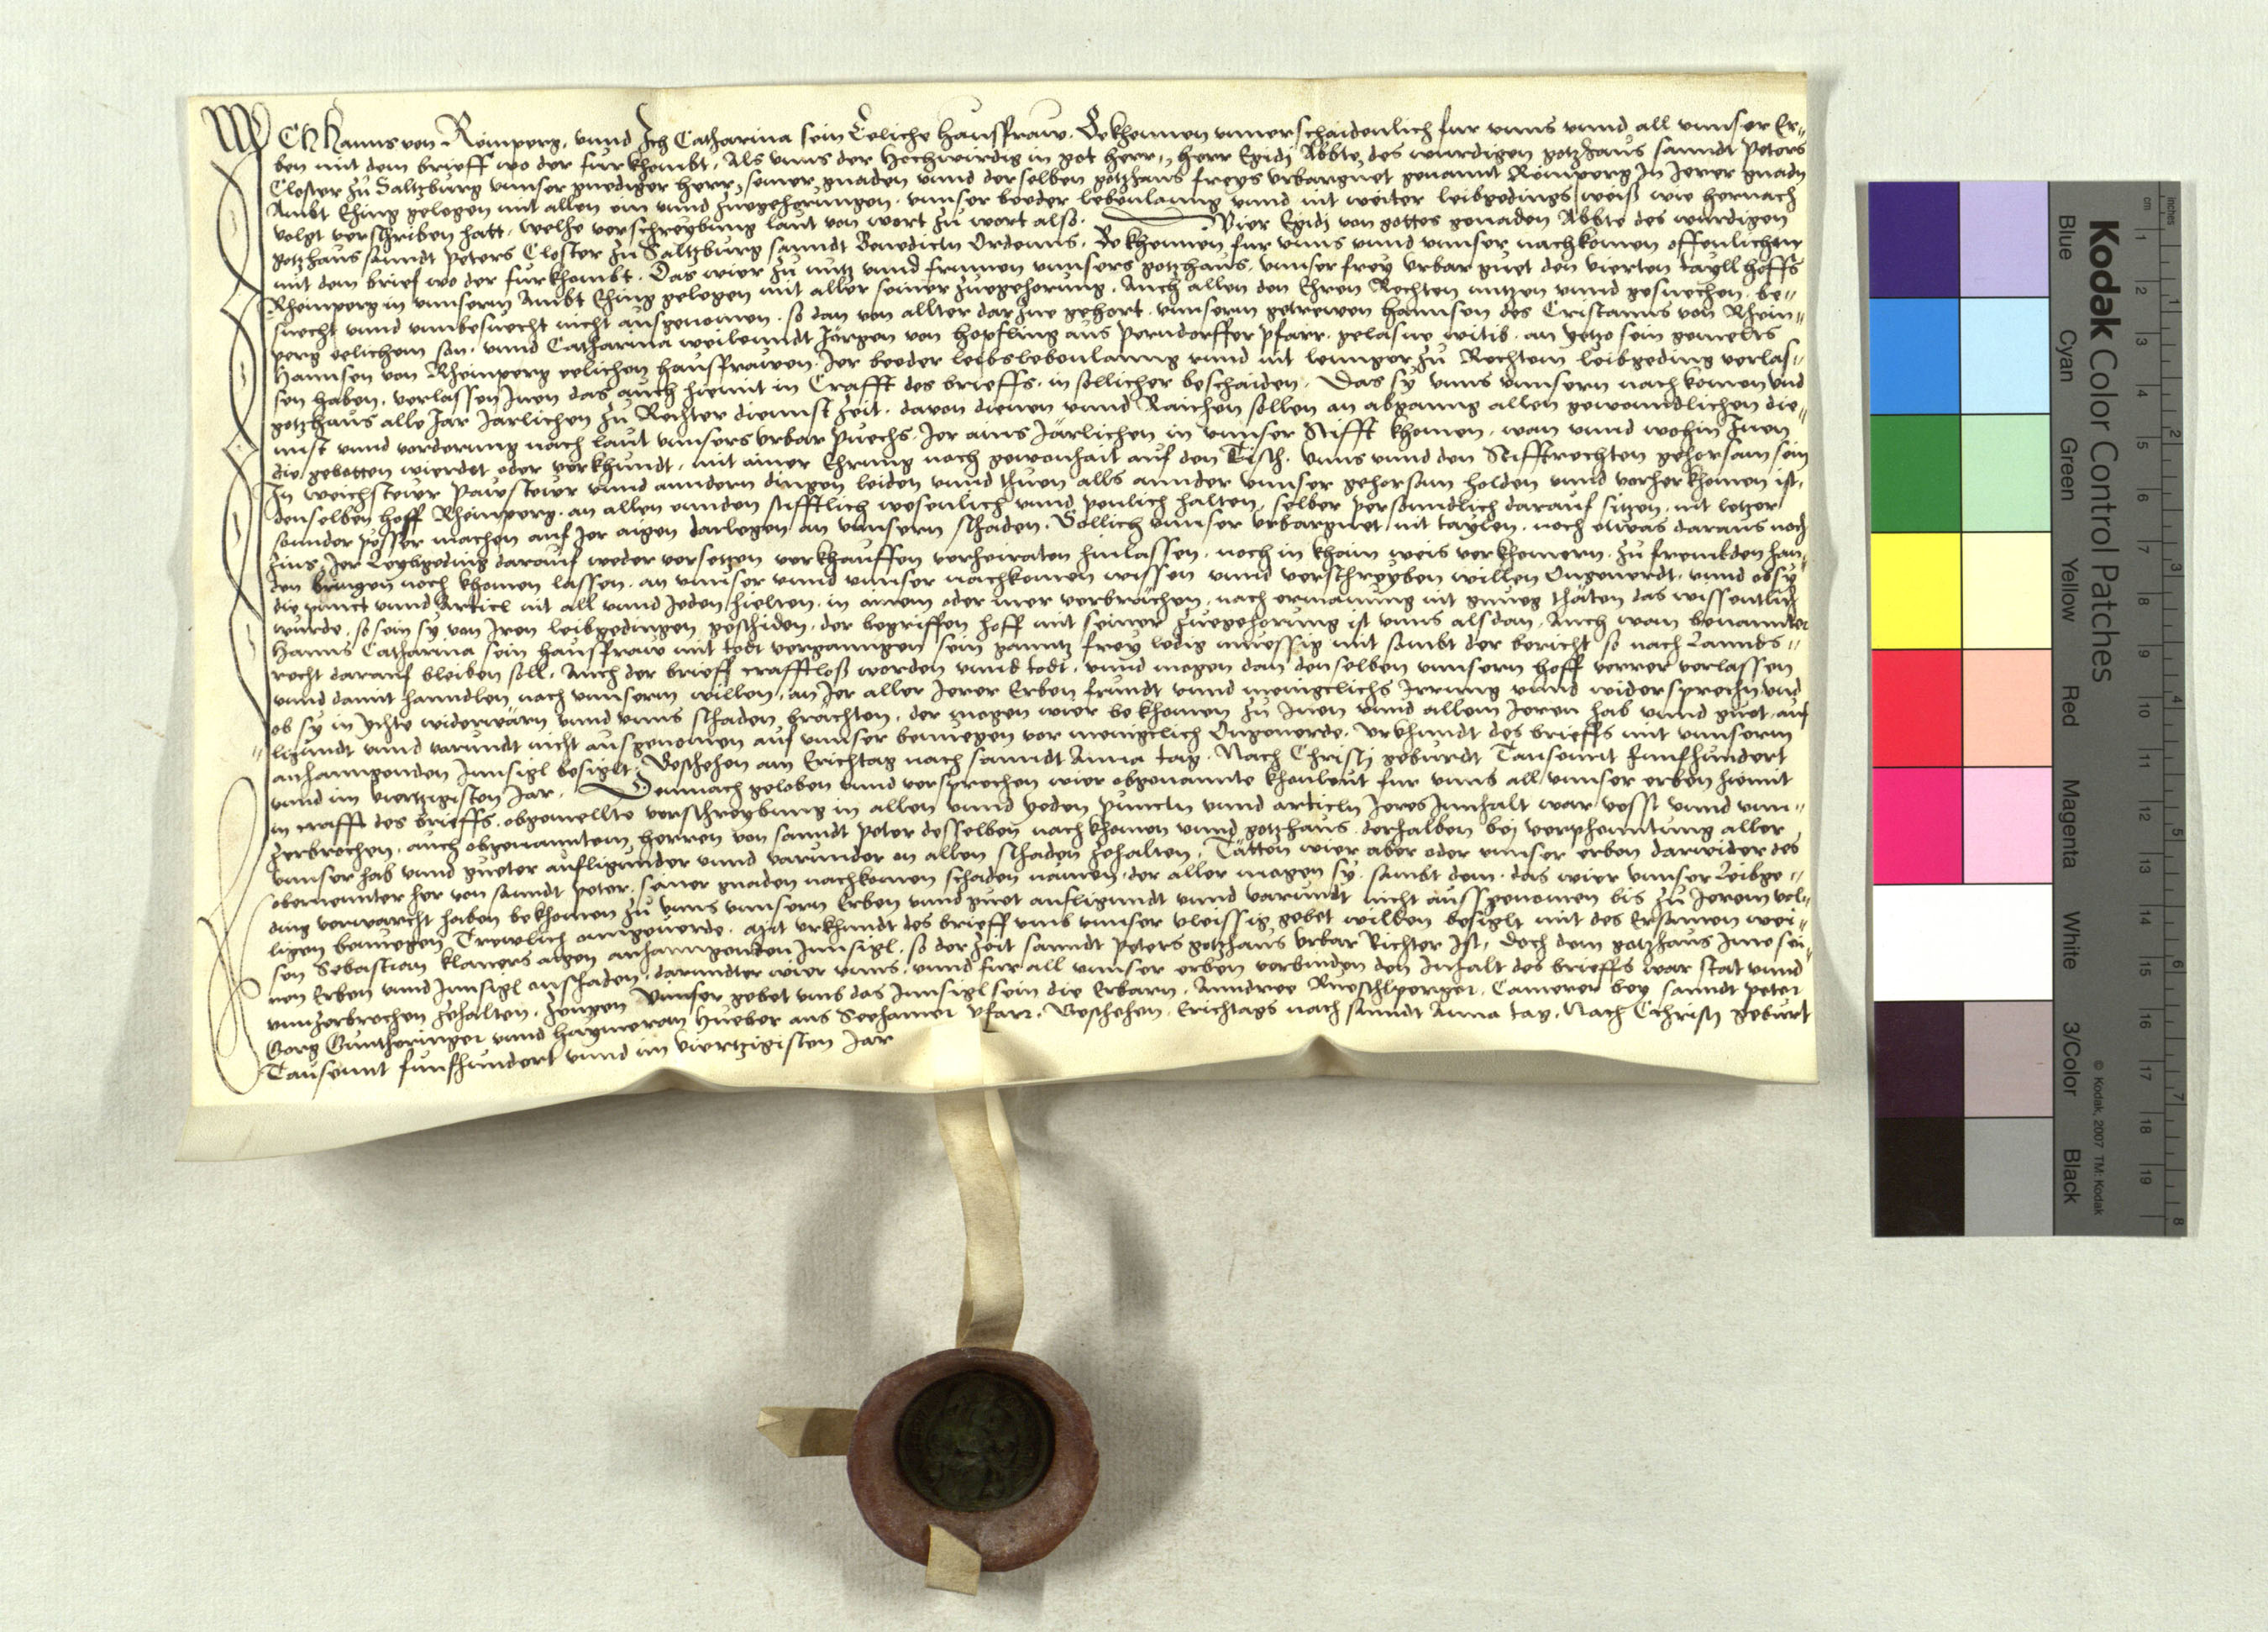 ICh Hanns von Reimperg, vnnd Ich Catharina sein Eeliche hausfraw. Bekhennen vnnerschaidenlich fur vnns vnnd all vnnser Er„
ben mit dem brieff wo der fürkhombt, Als vnns der Hochwirdig in got herr, herr Egidj Abbte des wurdigen gotzhaus sanndt Peters
Closter zu Saltzburg vnnser gnediger herr, seiner gnaden vnnd derselben gotzhaus freys vrbarguet genannt Reimperg In Jerer gnadn
Ambt Ehing gelegen mit allen ein vnnd zuegehorungen. vnnser beeder lebenlanng vnnd nit weiter leibgedings weiß wie hernach
volgt verschriben hatt, welhe verschreybung laut von wort zu wort also. Wier Egidj von gottes genaden Abbte des wurdigen
gotzhaus sanndt Peters Closter zu Saltzburg sanndt Benedictn Ordenns. Bekhennen fur vnns vnnd vnnser nachkomen offenlichen
mit dem brief wo der furkhombt. Das wier zu nutz vnnd frumen vnnsers gotzhaus, vnnser frey vrbar guet den vierten tayll hoffs
Rheimperg in vnnserm Ambt Ehing gelegen mit aller seiner zuegehorung. Auch allen den Ehren Rechten nutzen vnnd gesuechen. be„
suecht vnnd vnnbesuecht nicht ausgenomen. so dan von allter darzue gehort. vnnserm getrewen hannsen des Cristanns von Rhein„
perg eelichem son. vnnd Catharina weilenndt Jorgen von hopfling aus Perndorffer Pfarr. gelasne witib. an yetzo sein gemelts
Hannsen von Rheimperg eelichen hausfrawen. Jer beeder leibslebenlanng vnnd nit lennger zu Rechtem leibgeding verlas„
sen haben. verlassen Jnen das auch hiemit in Crafft des brieffs. in sollicher beschaiden. Das sy vnns vnnsern nachkomen vnd
gotzhaus alle Jar Jarlichen zu Rechter diennst zeit. davon dienen vnnd Raichen sollen an abganng allen gewonndlichen die„
nnst vnnd vorderung nach laut vnnsers vrbar puechs. Jer ains Järlichen in vnnser Stifft khomen. wan vnnd wohin Jnen
die gebotten wierdet oder verkhundt. mit ainer Ehrung nach gewonhait auf den Tisch. vnns vnnd den Stifftrechten gehorsam sein
In weichsteur Pawsteur vnnd anndern dingen leiden vnnd thuen alls annder vnnser gehorsam holden vnnd vorher khomen ist.
denselben hoff Rheimperg. an allen ennden stifftlich wesenlich vnnd peulich halten. selber persondlich darauf sitzen. nit letzer
sonnder pesser machen auf Jer aigen darlegen an vnnsern schaden. Sollich vnnser vrbarguet nit taylen. noch etwas daraus noch
Zins, Jer Leybgeding darauf weder versetzen verkhauffen verheiraten hinlassen. noch in khain weis verkhomern. zu frembden han„
den bringen noch khomen lassen. an vnnser vnnd vnnser nachkomen wissen vnnd verschreyben willen Ongeuerdt. vnnd ob sy
die punct vnnd Articl nit all vnnd Jeden hielten. in ainem oder mer verbrächen. nach ermanung nit genueg thäten das wissentlich
wurde. so sein sy von Jren leibgedingen geschiden. der begriffen hoff mit seiner zuegehorung ist vnns alsdan. Auch wan benannter
Hanns Catharina sein hausfraw mit todt vergangen sein ganntz frey ledig muessig mit sambt der bericht so nach Lannds„
recht darauf bleiben soll. Auch der brieff crafftloß worden vnnd todt. vnnd mogen dan denselben vnnsern hoff verrer verlassen
vnnd damit hanndlen nach vnnserm willen. an Jer aller Jerer Erben frundt vnnd menigclichs Jrrung vnnd widersprechn vnd
ob sy in ychte widerwärn vnnd vnns schaden brächten. der mogen wier bekhomen zu Jnen vnnd allem Jeren hab vnnd guet auf
„ligundt vnnd varundt nicht ausgenomen auf vnnser benuegen vor menigclich Ongeuerde. vrkhundt des brieffs mit vnnserm
anhanngenden Innsigl besiglt. Beschehen am Erichtag nach sanndt Anna tag. Nach Christj geburdt Tausennt funfhundert
vnnd im viertzigisten Jar. Demnach geloben vnnd versprechen wier obgenannte khonleut fur vnns all vnnser erben hiemit
in crafft des brieffs. obgemellte verschreybung in allen vnnd yeden puncten vnnd articln Jeres Innhalt war vesst vnnd vnn„
zerbrochen. auch obgenanntem herren von sanndt Peter desselben nach khomen vnnd gotzhaus. derhalben bey verphenntung aller
vnnser hab vnnd gueter aufligunder vnnd varunder on allen schaden zehalten. Tätten wier aber oder vnnser erben darwider des
obernennter her von sanndt Peter. seiner gnaden nachkomen schaden namen. der aller mogen sy. sambt dem. das wier vnnser Leibge„
ding verwarcht haben bekhomen zu vnns vnnsern Erben vnnd guet aufligundt vnnd varundt nicht aussgenomen bis zu Jerem vol„
ligen benuegen Trewlich onngeuerde. Mit vrkhundt des brieff vmb vnnser vleissig gebet willen besiglt mit des Ersamen wei„
sen Sebastian Klaners aigen anhanngenden Innsigl. so der zeit sanndt Peters gotzhaus vrbar Richter Ist, doch dem gotzhaus Jme sei„
nen Erben vnnd Innsigl onschaden. darundter wier vnns. vnnd fur all vnnser erben verbinden den Inhalt des brieffs war stat vnnd
vnnzerbrochen zehalten. zeugen vnnser gebet vmb das Innsigl sein die Erbarn. Anndree Rueschlperger. Camerer bey sanndt Peter
Georg Guntheringer vnnd haymeran hueber aus Seehamer Pfarr. Beschehen. Erichtags nach sanndt Anna tag. Nach Christj geburt
Tausennt funfhundert vnnd im viertzigisten Jar
Kodak Color Control Patches
Blue Cyan Green Yellow Red Magenta White 3/Color Black
© Kodak, 2007 TM: Kodak
cm 1 2 3 4 5 6 7 8 9 10 11 12 13 14 15 16 17 18 19
inches 1 2 3 4 5 6 7 8